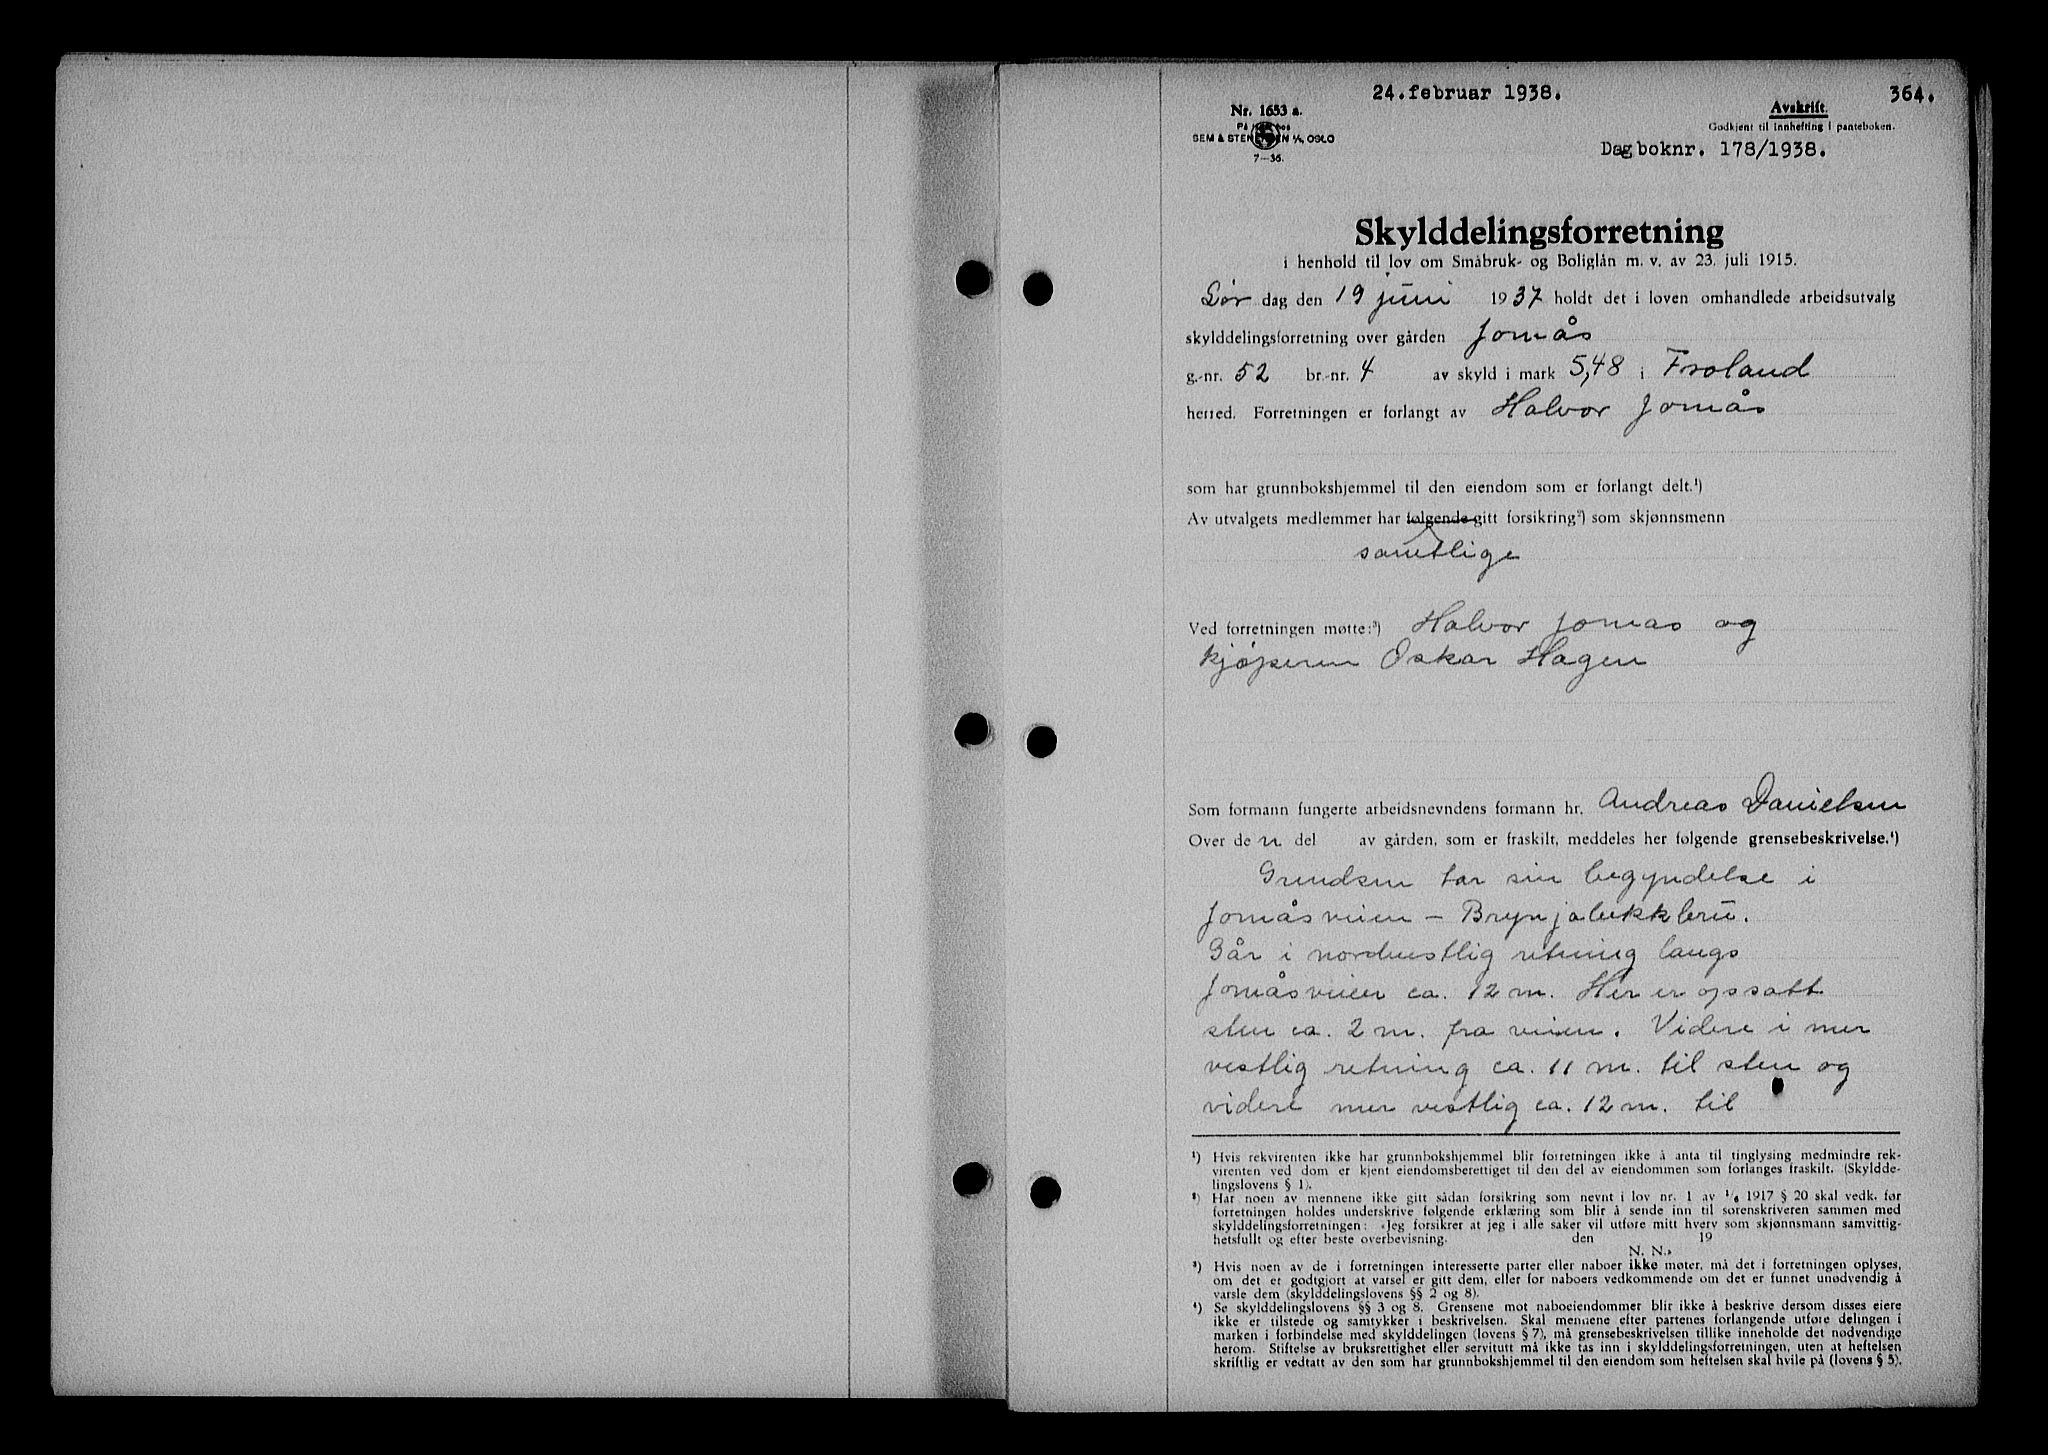 24. februar 1938.
364.
Nr. 1653 a.
Avskrift.
Godkjent til innhefting i panteboken.
SEM & STENERSEN A/S, OSLO
7—36.
Dagboknr. 178/1938.
Skylddelingsforretning
i henhold til lov om Småbruk- og Boliglån m. v. av 23. juli 1915.
Lør dag den 19 juni 1937 holdt det i loven omhandlede arbeidsutvalg
skylddelingsforretning over gården Jomås
g.-nr. 52 br.-nr. 4 av skyld i mark 5,48 i Froland
herred. Forretningen er forlangt av Halvor Jomås
som har grunnbokshjemmel til den eiendom som er forlangt delt.¹)
Av utvalgets medlemmer har følgende gitt forsikring²) som skjønnsmenn
samtlige
Ved forretningen møtte:³) Halvor Jomas og
kjøperen Oskar Hagen
Som formann fungerte arbeidsnevndens formann hr. Andreas Danielsen
Over de n del av gården, som er fraskilt, meddeles her følgende grensebeskrivelse.⁴)
Grendsen tar sin begyndelse i
Jomåsveien – Brynjabekkbru.
Går i nordvestlig retning langs
Jomåsveien ca. 12 m. Her er opsatt
sten ca. 2 m. fra veien. Videre i mer
vestlig retning ca. 11 m. til sten og
videre mer vestlig ca. 12 m. til
¹) Hvis rekvirenten ikke har grunnbokshjemmel blir forretningen ikke å anta til tinglysing medmindre rek-
virenten ved dom er kjent eiendomsberettiget til den del av eiendommen som forlanges fraskilt. (Skyldde-
lingslovens § 1).
²) Har noen av mennene ikke gitt sådan forsikring som nevnt i lov nr. 1 av 1/6 1917 § 20 skal vedk. før
forretningen holdes underskrive følgende erklæring som blir å sende inn til sorenskriveren sammen med
skylddelingsforretningen: «Jeg forsikrer at jeg i alle saker vil utføre mitt hverv som skjønnsmann samvittig-
hetsfullt og efter beste overbevisning. den 19
N. N.»
³) Hvis noen av de i forretningen interesserte parter eller naboer ikke møter, må det i forretningen oplyses,
om det er godtgjort at varsel er gitt dem, eller for naboers vedkommende om det er funnet unødvendig å
varsle dem (skylddelingslovens §§ 2 og 8).
⁴) Se skylddelingslovens §§ 3 og 8. Grensene mot naboeiendommer blir ikke å beskrive dersom disses eiere
ikke er tilstede og samtykker i beskrivelsen. Skal mennene efter partenes forlangende utføre delingen i
marken i forbindelse med skylddelingen (lovens § 7), må grensebeskrivelsen tillike inneholde det nødvendige
herom. Stiftelse av bruksrettighet eller servitutt må ikke tas inn i skylddelingsforretningen, uten at heftelsen
skriftlig er vedtatt av den som har grunnbokshjemmel til den eiendom som heftelsen skal hvile på (lovens § 5).